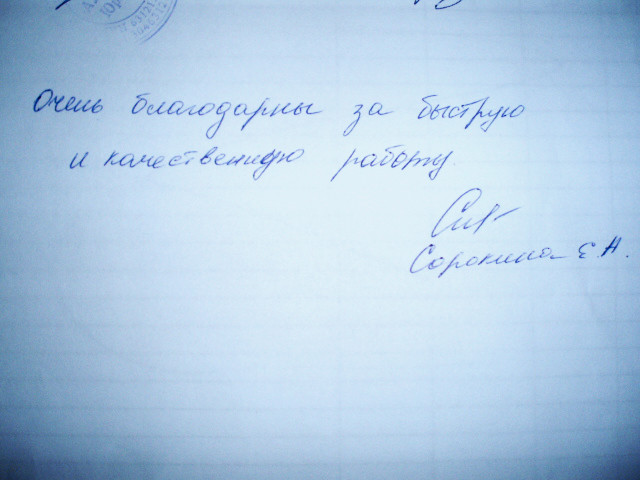 Очень благодарны за быструю
и качественную работу.
Сорокина Е.Н.